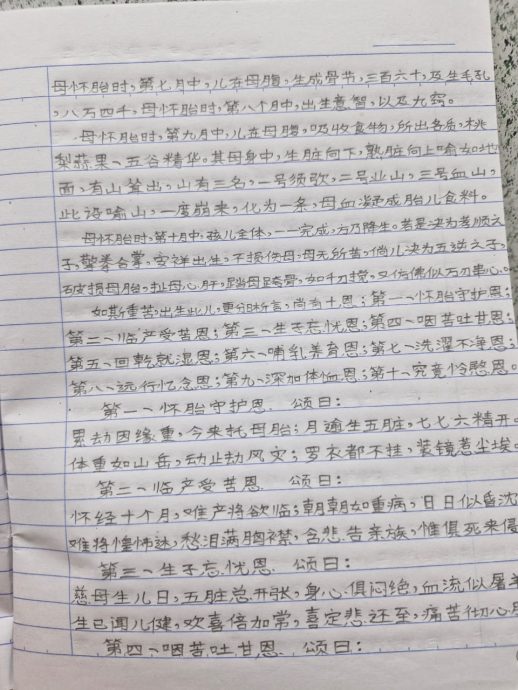 母怀胎时,第七月中,儿在母腹,生成骨节,三百六十,及生毛孔
,八万四千,母怀胎时,第八个月中,出生意智,以及九窍。
母怀胎时,第九月中,儿在母腹,吸收食物,所出各质,桃
梨蒜果、五谷精华。其母身中,生脏向下,熟脏向上喻如地
面,有山耸出,山有三名,一号须弥,二号业山,三号血山,
此设喻山,一度崩来,化为一条,母血凝成胎儿食料。
母怀胎时,第十月中,孩儿全体,一一完成,方乃降生。若是决为孝顺之
子,擎拳合掌,安祥出生,不损伤母,母无所苦,倘儿决为五逆之子,
破损母胎,扯母心肝,踏母跨骨,如千刀搅,又仿佛似万刃串心。
如斯重苦,出生此儿,更分晰言,尚有十恩;第一、怀胎守护恩;
第二、临产受苦恩;第三、生子忘忧恩;第四、咽苦吐甘恩;
第五、回乾就湿恩;第六、哺乳养育恩;第七、洗濯不净恩;
第八、远行忆念恩;第九、深加体恤恩;第十、究竟怜愍恩。
第一、怀胎守护恩 颂曰:
累劫因缘重,今来托母胎;月逾生五脏,七七六精开。
体重如山岳,动止劫风灾;罗衣都不挂,装镜惹尘埃。
第二、临产受苦恩 颂曰:
怀经十个月,难产将欲临;朝朝如重病,日日似昏沈
难将惶怖述,愁泪满胸襟,含悲告亲族,惟俱死来侵
第三、生子忘忧恩 颂曰:
慈母生儿日,五脏总开张,身心俱闷绝,血流似屠羊
生已闻儿健,欢喜倍加常,喜定悲还至,痛苦彻心
第四、咽苦吐甘恩 颂曰: